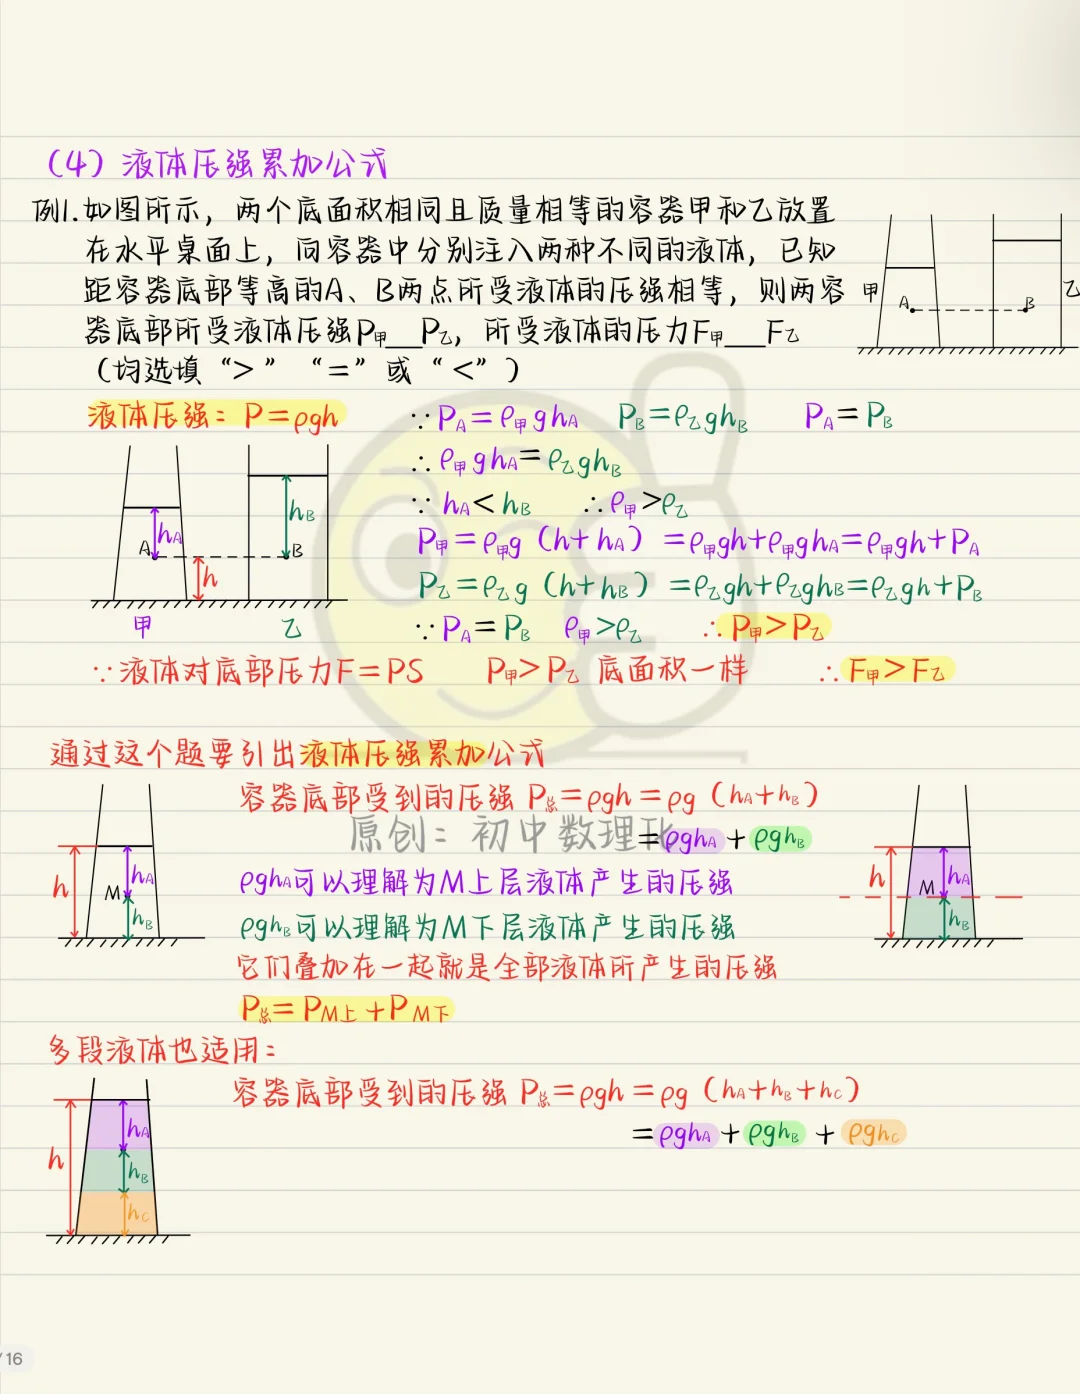 （4）液体压强累加公式
例1.如图所示，两个底面积相同且质量相等的容器甲和乙放置
在水平桌面上，向容器中分别注入两种不同的液体，已知
距容器底部等高的A、B两点所受液体的压强相等，则两容
器底部所受液体压强P甲__P乙，所受液体的压力F甲__F乙
（均选填“>”“=”或“<”）
甲 A B 乙
液体压强：P=ρgh
∵PA=ρ甲ghA PB=ρ乙ghB PA=PB
∴ρ甲ghA=ρ乙ghB
∵hA<hB ∴ρ甲>ρ乙
P甲=ρ甲g（h+hA）=ρ甲gh+ρ甲ghA=ρ甲gh+PA
P乙=ρ乙g（h+hB）=ρ乙gh+ρ乙ghB=ρ乙gh+PB
∵PA=PB ρ甲>ρ乙 ∴P甲>P乙
hA hB
A B
h
甲 乙
∵液体对底部压力F=PS P甲>P乙 底面积一样 ∴F甲>F乙
通过这个题要引出液体压强累加公式
容器底部受到的压强P总=ρgh=ρg（hA+hB）
=ρghA+ρghB
原创：初中数理化
ρghA可以理解为M上层液体产生的压强
ρghB可以理解为M下层液体产生的压强
它们叠加在一起就是全部液体所产生的压强
P总=PM上+PM下
h M hA hB
h M hA hB
多段液体也适用：
容器底部受到的压强P总=ρgh=ρg（hA+hB+hC）
=ρghA+ρghB+ρghC
h hA hB hC
/16